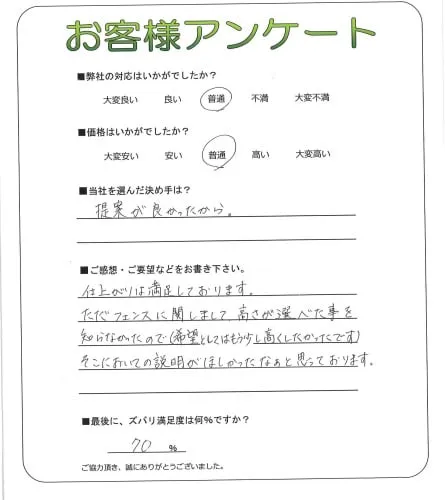 お客様アンケート
■弊社の対応はいかがでしたか？
大変良い 良い 普通 不満 大変不満
■価格はいかがでしたか？
大変安い 安い 普通 高い 大変高い
■当社を選んだ決め手は？
提案が良かったから。
■ご感想・ご要望などをお書き下さい。
仕上がりは満足しております。
ただフェンスに関しまして、高さが選べた事を
知らなかったので(希望としてはもう少し高くしたかったです)
そこにおいての説明がほしかったなぁと思っております。
■最後に、ズバリ満足度は何%ですか？
70 %
ご協力頂き、誠にありがとうございました。